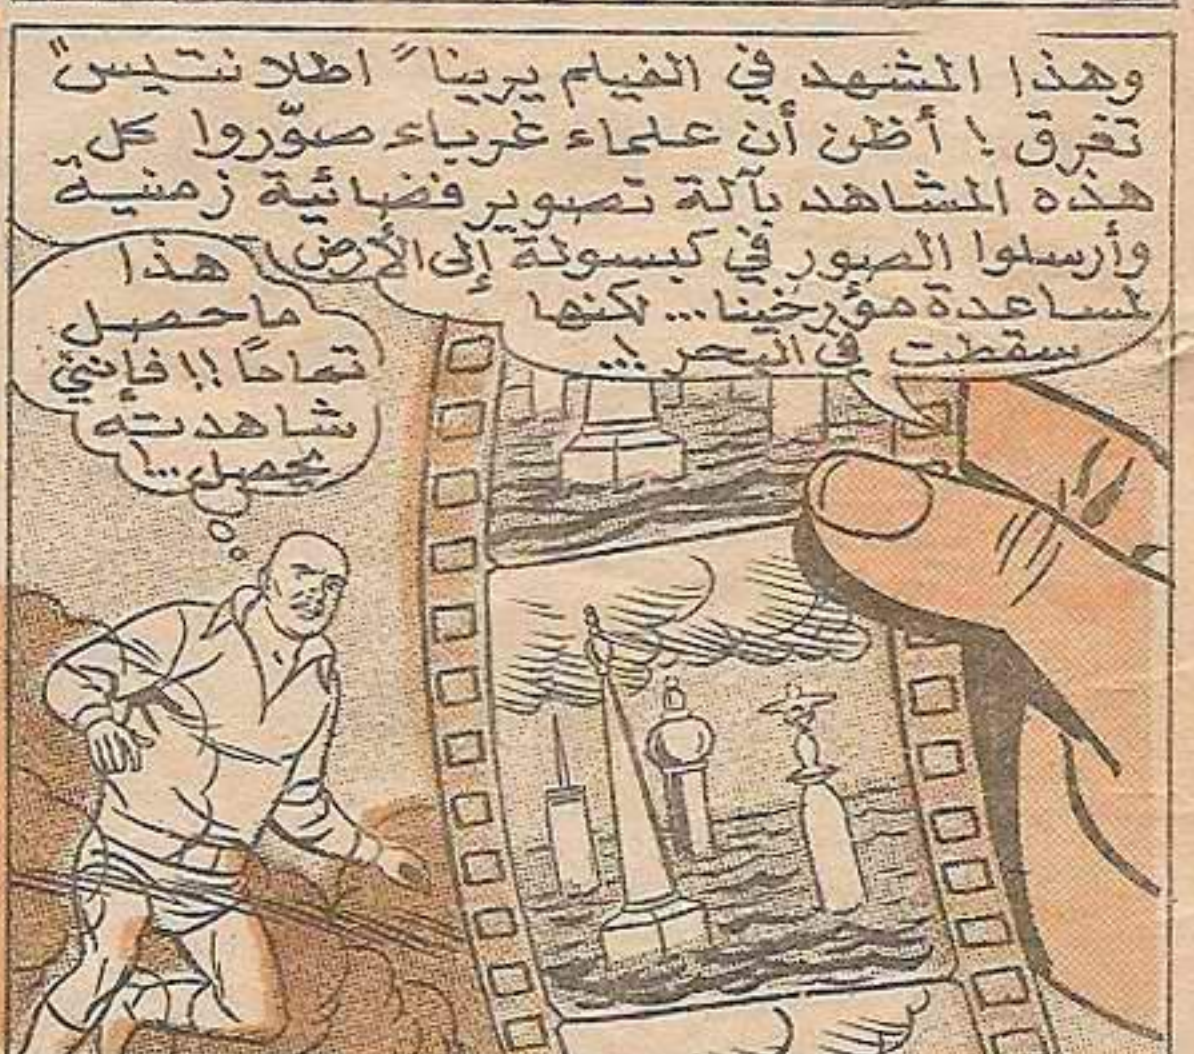 وهذا المشهد في الفيلم يرينا "اطلانتيس"
تغرق! أظن أن علماء غرباء صوّروا كل
هذه المشاهد بآلة تصوير فضائية زمنية
وأرسلوا الصور في كبسولة إلى الأرض
لمساعدة مؤرخينا... لكنها
سقطت في البحر!...
هذا
ما حصل
تماماً!! فإنني
شاهدته
يحصل...!